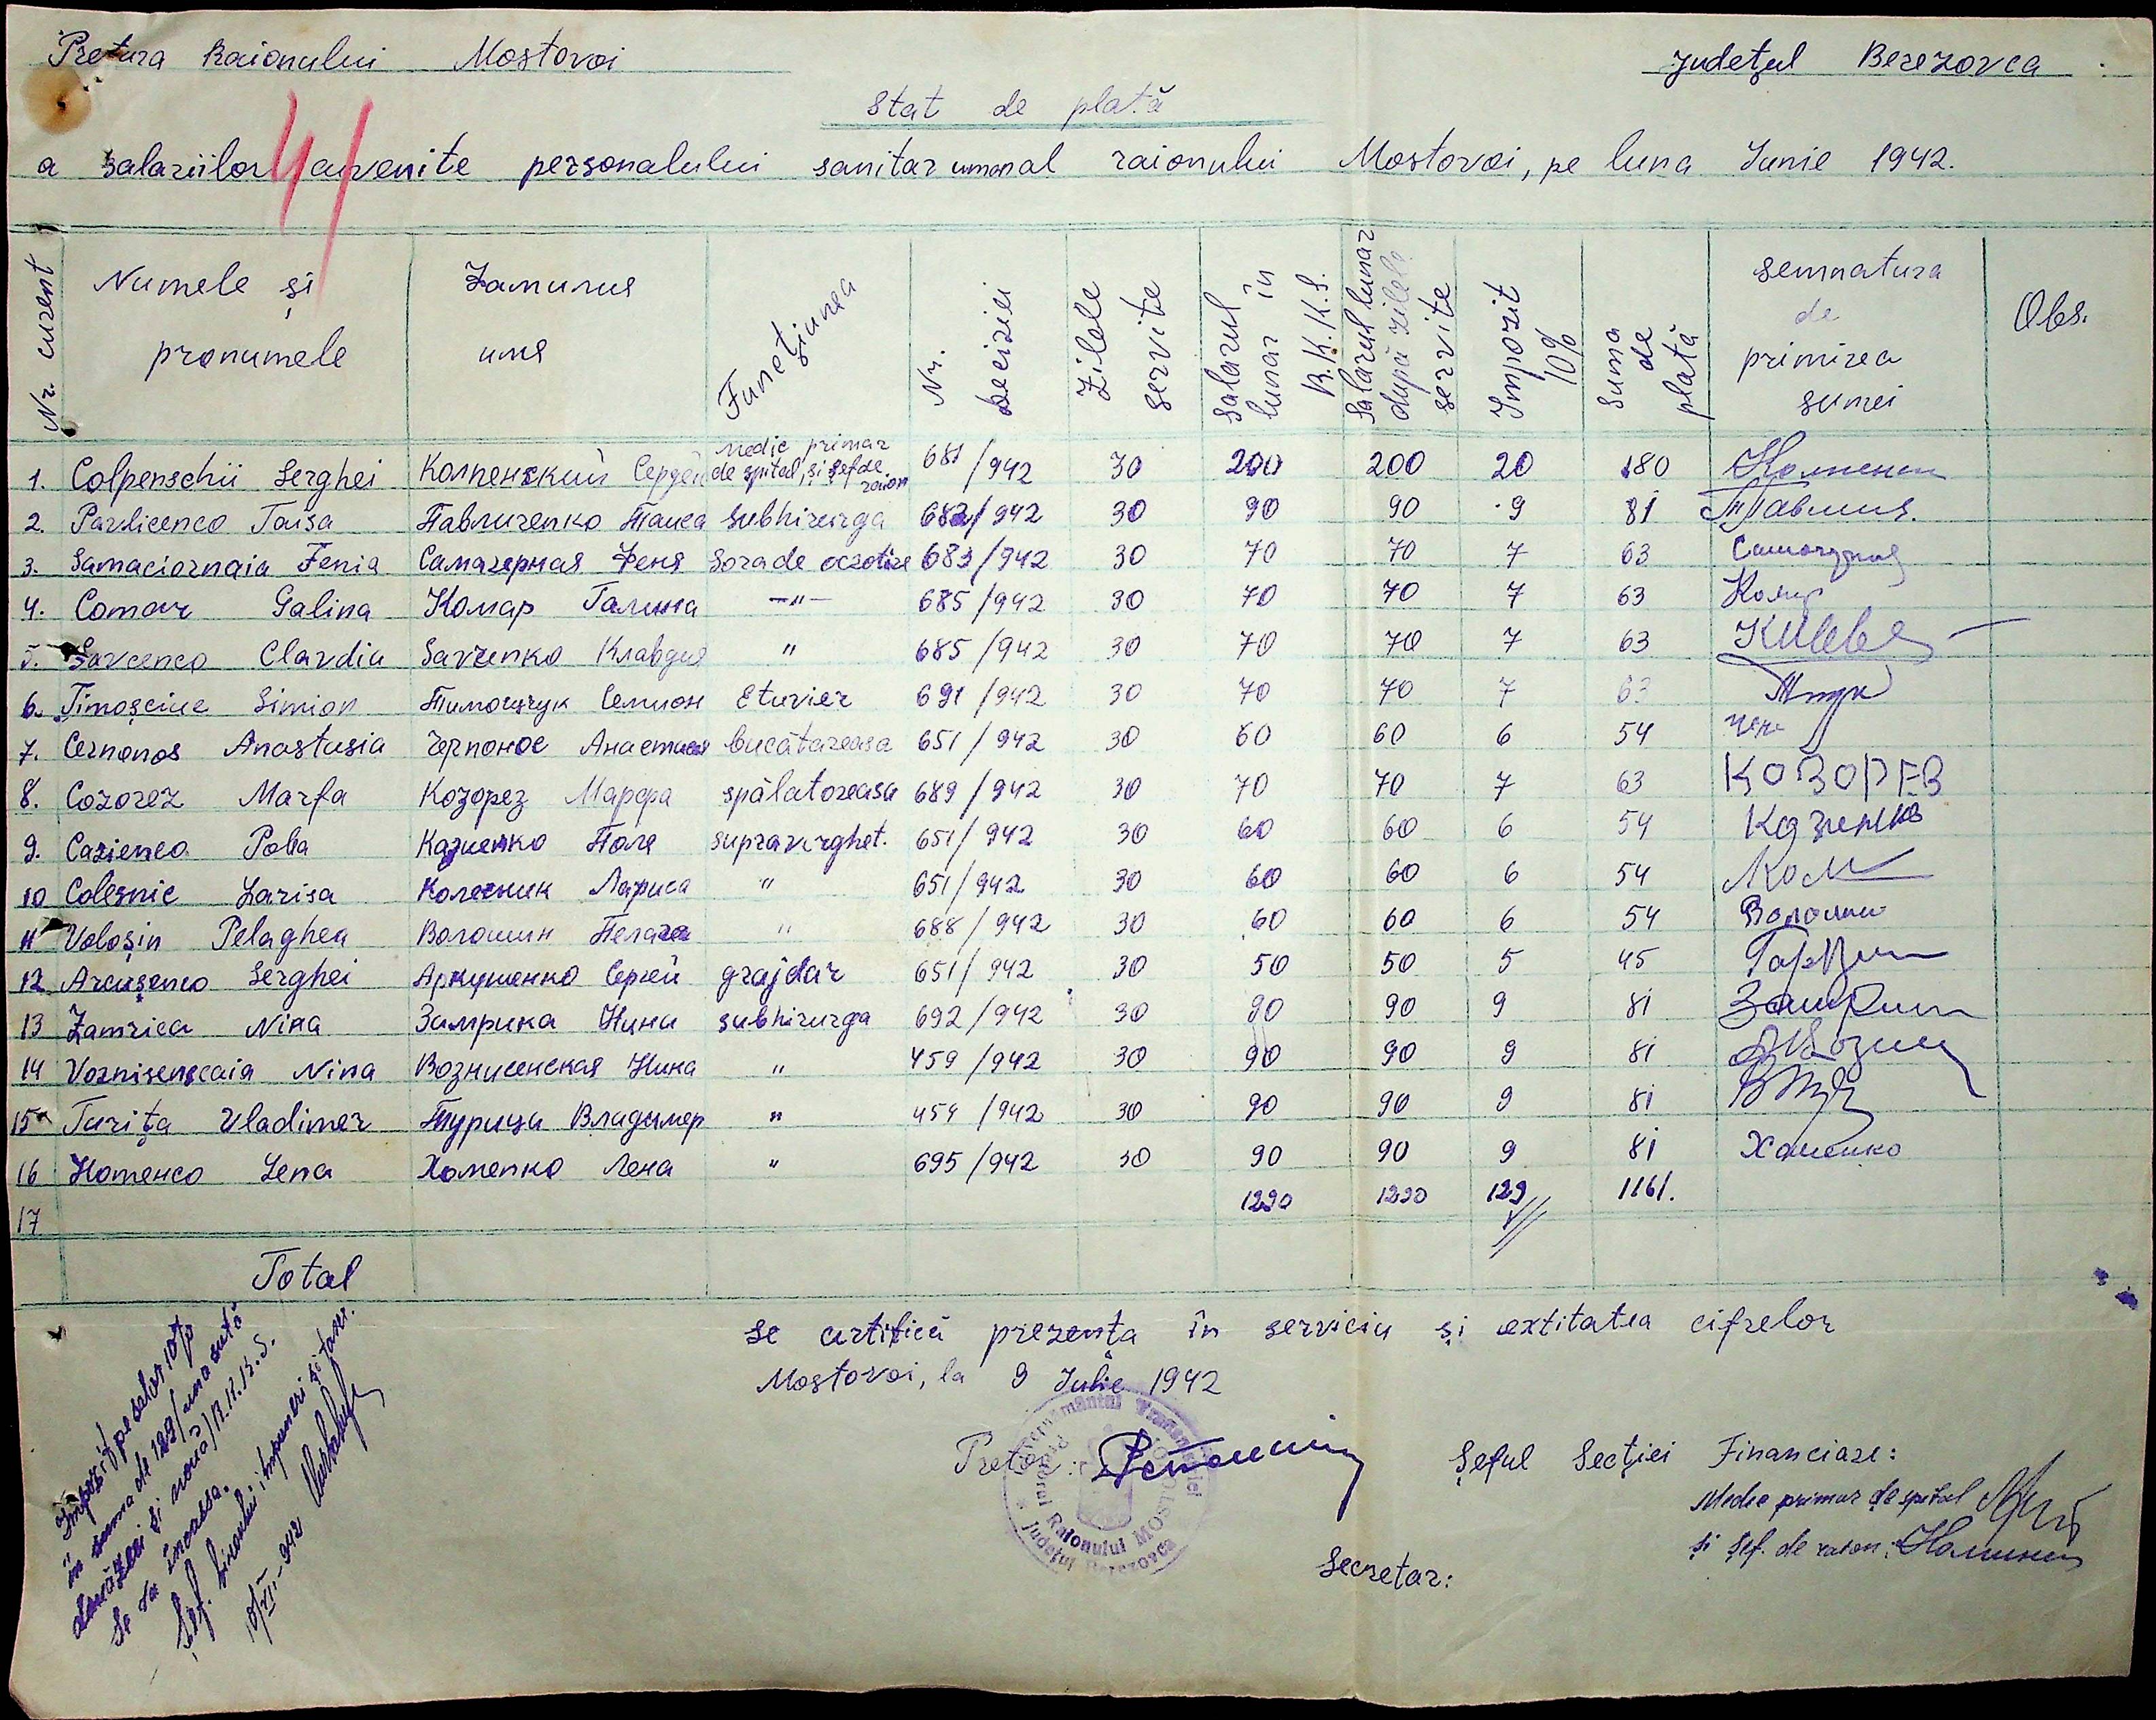 Pretura Raionului Mostovoi
Județul Berezovca
Stat de plată
a salariilor cuvenite personalului sanitar umonal raionului Mostovoi, pe luna Iunie 1942.
Nr. curent Numele și pronumele Фамилия имя Funcțiunea Nr. deciziei Zilele servite Salarul lunar în R.K.K.S. Salarul lunar după zilele servite Impozit 10% Suma de plată semnatura de primirea sumei Obs.
1. Colpenschii Serghei Колпенский Сергей Medic primar de spital, și șef de raion 681/942 30 200 200 20 180
2. Pavlicenco Taisa Павличенко Таиса Subhirurga 682/942 30 90 90 9 81
3. Samaciornaia Fenia Самачерная Феня Sora de ocrotire 683/942 30 70 70 7 63
4. Comar Galina Комар Галина —"— 685/942 30 70 70 7 63 Комар
5. Savcenco Clavdia Savченко Клавдия " 685/942 30 70 70 7 63
6. Timoșciuc Simion Тимощук Семион Etuvier 691/942 30 70 70 7 63
7. Cernonos Anastasia Черпонос Анастасия bucătareasa 651/942 30 60 60 6 54
8. Cozorez Marfa Козорез Марфа spălatoreasa 689/942 30 70 70 7 63 КОЗОРЕЗ
9. Cazienco Polia Казиенко Поля supravrghet. 651/942 30 60 60 6 54
10 Colesnic Larisa Колесник Лариса " 651/942 30 60 60 6 54
11 Voloșin Pelaghea Волошин Пелагея " 688/942 30 60 60 6 54 Волошин
12 Arcușenco Serghei Аркушенко Сергей grajdar 651/942 30 50 50 5 45
13 Zamrica Nina Замрика Нина subhirurga 692/942 30 90 90 9 81
14 Voznisenscaia Nina Вознисенская Нина " 459/942 30 90 90 9 81
15 Turița Vladimer Турица Владимер " 459/942 30 90 90 9 81
16 Homenco Lena Хоменко Лена " 695/942 30 90 90 9 81 Хоменко
1290 1290 129 1161.
17
Total
Se certifică prezența în serviciu și extitatea cifrelor
Mostovoi, la 9 Iulie 1942
Pretor:
Guvernământul Transnistriei
Pretorul Raionului MOSTOVOI
Județul Berezovca
Șeful Secției Financiare:
Medic primar de spital
și șef. de raion:
Secretar:
Impozit pe salar 10%
în suma de 129/una sută
douăzeci și nouă/R.K.K.S.
se va încassa.
Șef. biroului, Impuneri și tax.
10/VII-942